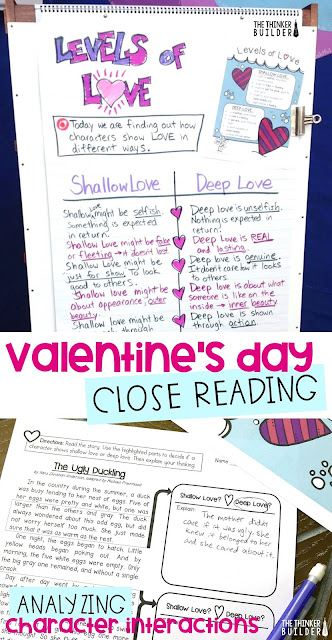 THE THINKER
BUILDER
LEVELS OF
LOVE
Levels of Love
SHALLOW LOVE
DEEP LOVE
Today we are finding out how
characters show LOVE in
different ways.
Shallow Love
Shallow love might be selfish.
Something is expected
in return.
Shallow Love might be fake
or fleeting → it doesn't last
Shallow Love might be
just for show. To look
good to others.
Shallow love might be
about appearance, outer
beauty.
Shallow love might be
Deep Love
Deep love is unselfish.
Nothing is expected in
return.
Deep Love is REAL
and lasting.
Deep love is genuine.
It don't care how it looks
to others.
Deep love is about what
someone is like on the
inside → inner beauty
Deep Love is shown
through action.
valentine's day
CLOSE READING
Directions: Read the story. Use the highlighted parts to decide if a
character shows shallow love or deep love. Then explain your thinking.
Name
The Ugly Duckling
by Hans Christian Andersen, adapted by Michael Friermood
In the country during the summer, a duck
was busy tending to her nest of eggs. Five of
her eggs were pretty and white, but one was
larger than the others and gray. The duck
always wondered about this odd egg, but did
not worry herself too much. She just made
sure that it was as warm as the rest.
One night, the eggs began to hatch. Little
yellow heads began poking out. And by
morning, the five white eggs were empty. Only
the big gray one remained, and without a single
crack.
Day after day went by
Shallow Love? Deep Love?
Explain:
The mother didn't
care if it was ugly. She
knew it was her baby
and she cared about it.
Shallow Love? Deep Love?
ANALYZING
character interactions
THE THINKER
BUILDER